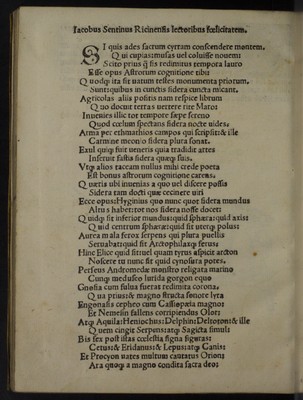 Iacobus Sentinus Ricinensis lectoribus fœlicitatem.
SI quis ades sacrum cyrram conscendere montem,
Qui cupiastimusas uel coluisse nouem:
Scito prius q̃ sis redimitus tempora lauro
Esse opus Astrorum cognitione tibi
Quodq; ita sit uatum testes monumenta priorum.
Suntquibus in cunctis sidera cuncta micant.
Agricolas aliis positis nam respice librum
Quo docuit terras uertere rite Maro:
Inuenies illic tot tempore sæpe sereno
Quod cœlum spectans sidera nocte uides.
Arma per emathios campos qui scripsit: & ille
Carmine meonio sidera plura sonat.
Exul quiq; fuit ueneris quia tradidit artes
Inseruit fastis sidera quæq; suis.
Vtq; alios taceam nullus mihi crede poeta
Est bonus astrorum cognitione carens.
Quæris ubi inuenias a quo uel discere possis
Sidera tam docti quæ cecinere uiri
Ecce opus: Hyginius quo nunc quoq; sidera mundus
Alta haberet: tot nos sidera nosse docet:
Quidq; sit inferius mundus: quid sphæra: quid axis:
Quid centrum sphæræ: quid sit uterq; polus:
Aurea mala ferox serpens qui plura puellis
Seruabat: quid sit Arctophilaxq; ferus:
Hinc Elice quid sit: uel quam tyrus aspicit arcton
Noscere tu nunc sit quid cynosura potes.
Perseus Andromedæ monstro religata marino
Cunq; meduseo lurida gorgon equo
Gnosia cum fulua fuerat redimita corona,
Quaprius & magno structa sonore lyra
Engonasis cephro cum Cassiopeia magnos
Et Nemesin fallens corripiendus Olor:
Atq; Aquila: Heniochus: Delphin: Deltoton: & ille
Quem cingit Serpens: atq; Sagitta simul:
Bis sex post istas cœlestia signa figuras:
Cetus: & Eridanus: & Lepus: atq; Canis:
Et Procyon uates multum cantatus Orion:
Ara quoq; a magno condita sacra deo: